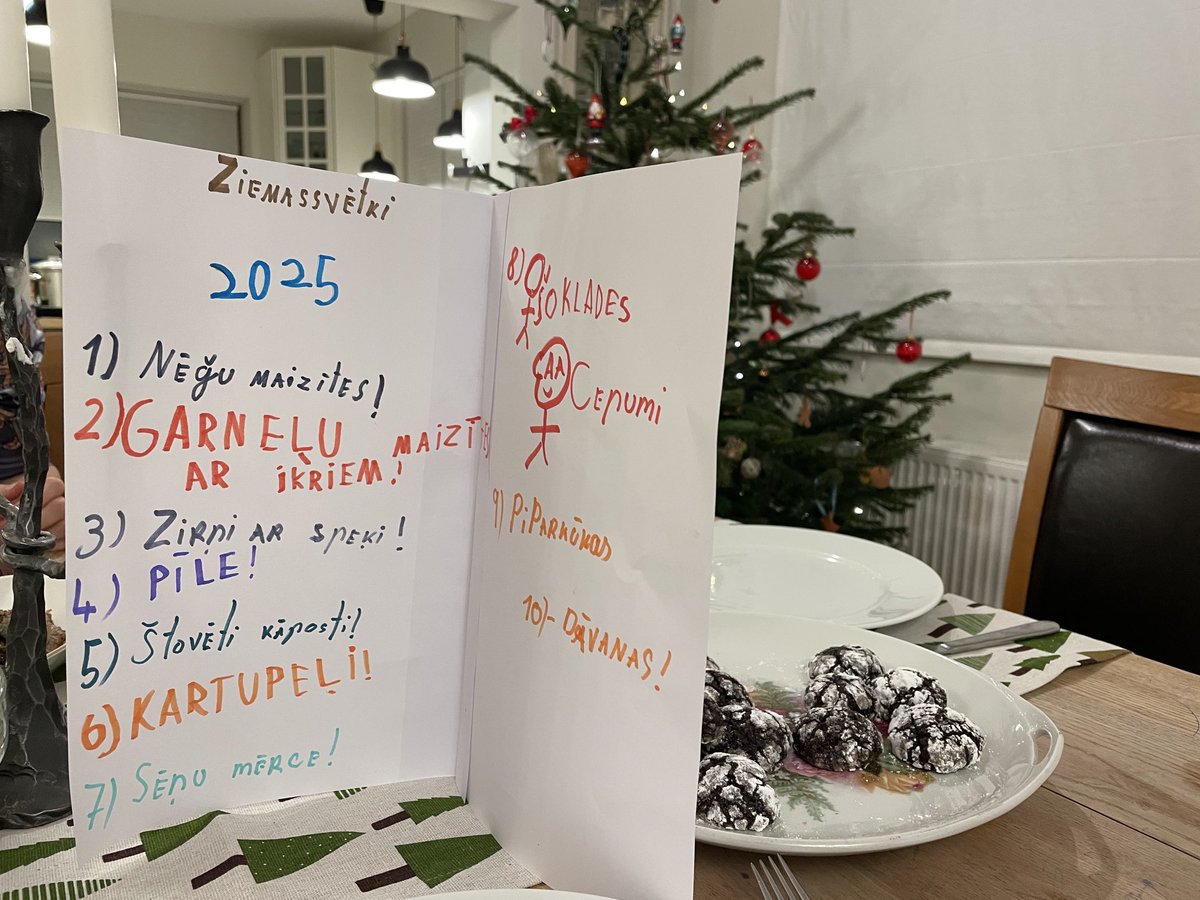 Ziemassvētki
2025
1) Nēģu maizites!
2) GARNEĻU MAIZĪTES
AR IKRIEM!
3) Ziŗņi AR speķi!
4) PĪLE!
5) Štovēti kāposti!
6) KARTUPEĻI!
7) Sēņu mērce!
8) ŠOKLADES
Cepumi
9) PiPARKŪKAS
10) - DĀVANAS!